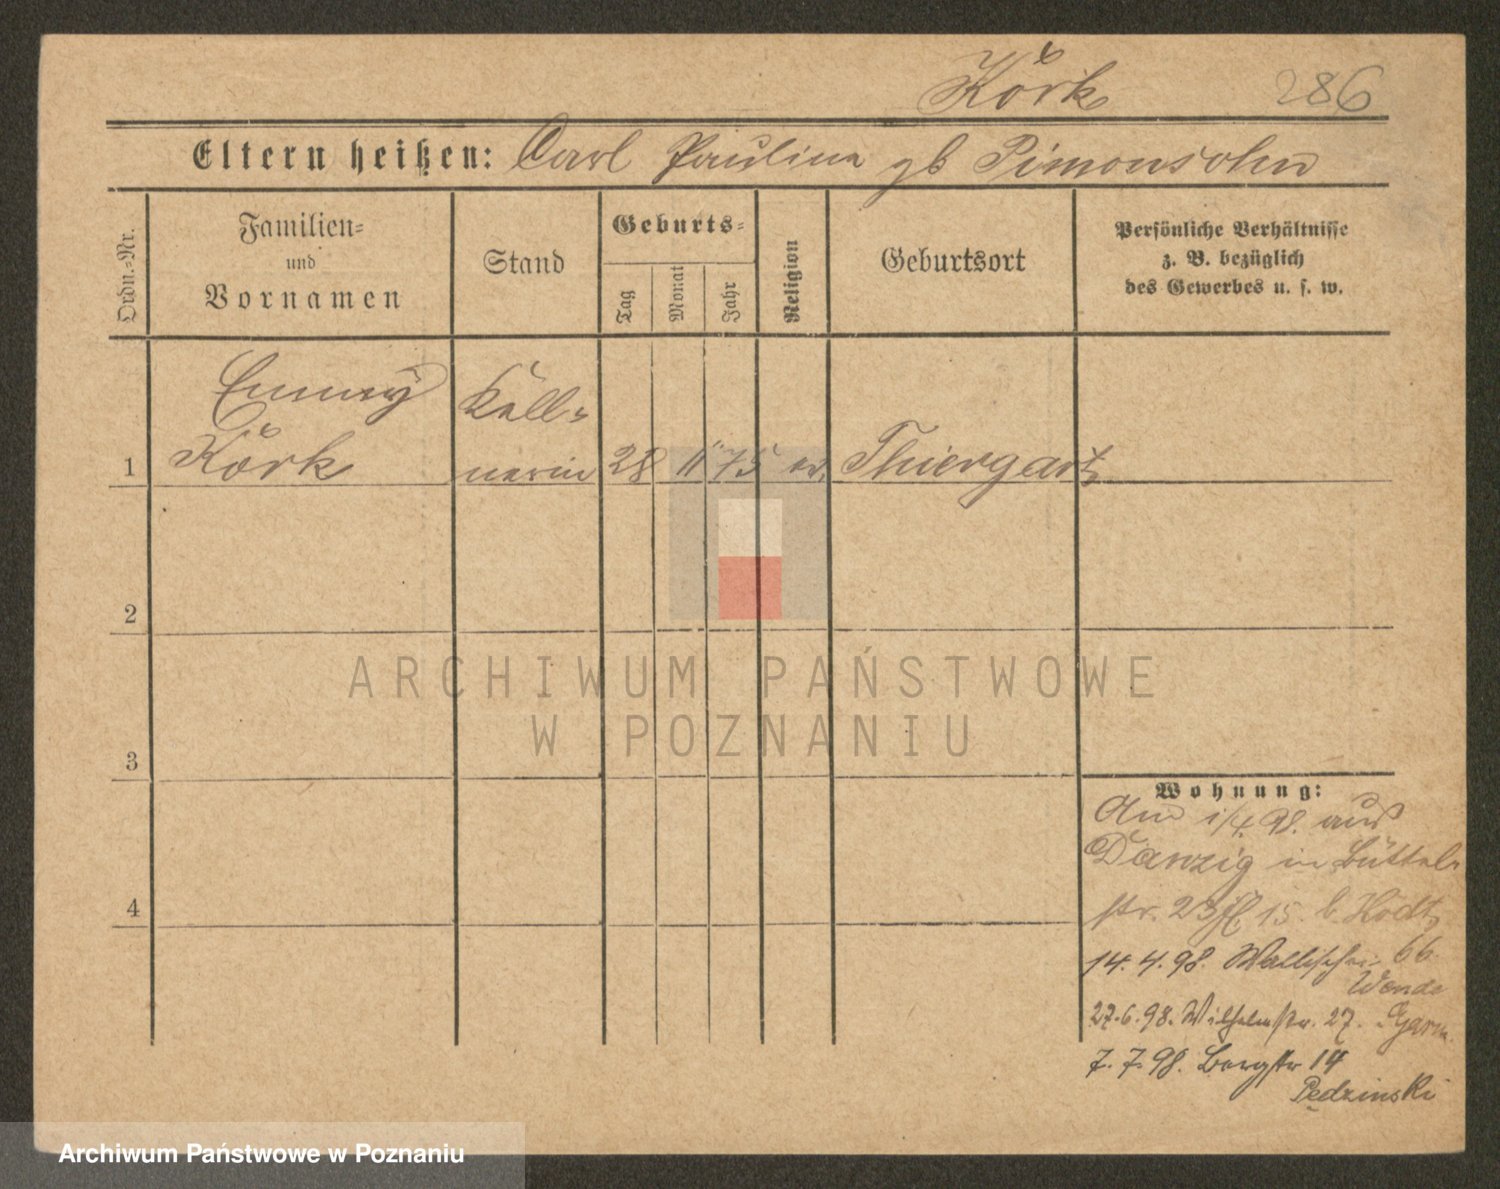 Körk 286
Eltern heißen: Carl Pauline gb Simonsohn
Ordn.-Nr.
Familien-
und
Vornamen
Stand
Geburts-
Tag
Monat
Jahr
Religion
Geburtsort
Persönliche Verhältnisse
z. B. bezüglich
des Gewerbes u. s. w.
Emmy Kell-
1 Körk nerin 28 11 75 ev. Thiergart
2
3
4
ARCHIWUM PAŃSTWOWE
W POZNANIU
Wohnung:
Am 1/4 98. aus
Danzig in Büttel-
str. 23 15. b.
14.4.98. Wallischei 66
Wenda
27.6.98. Wilhelmstr. 27.
7.7.98. Bergstr 14
Pędzinski
Archiwum Państwowe w Poznaniu